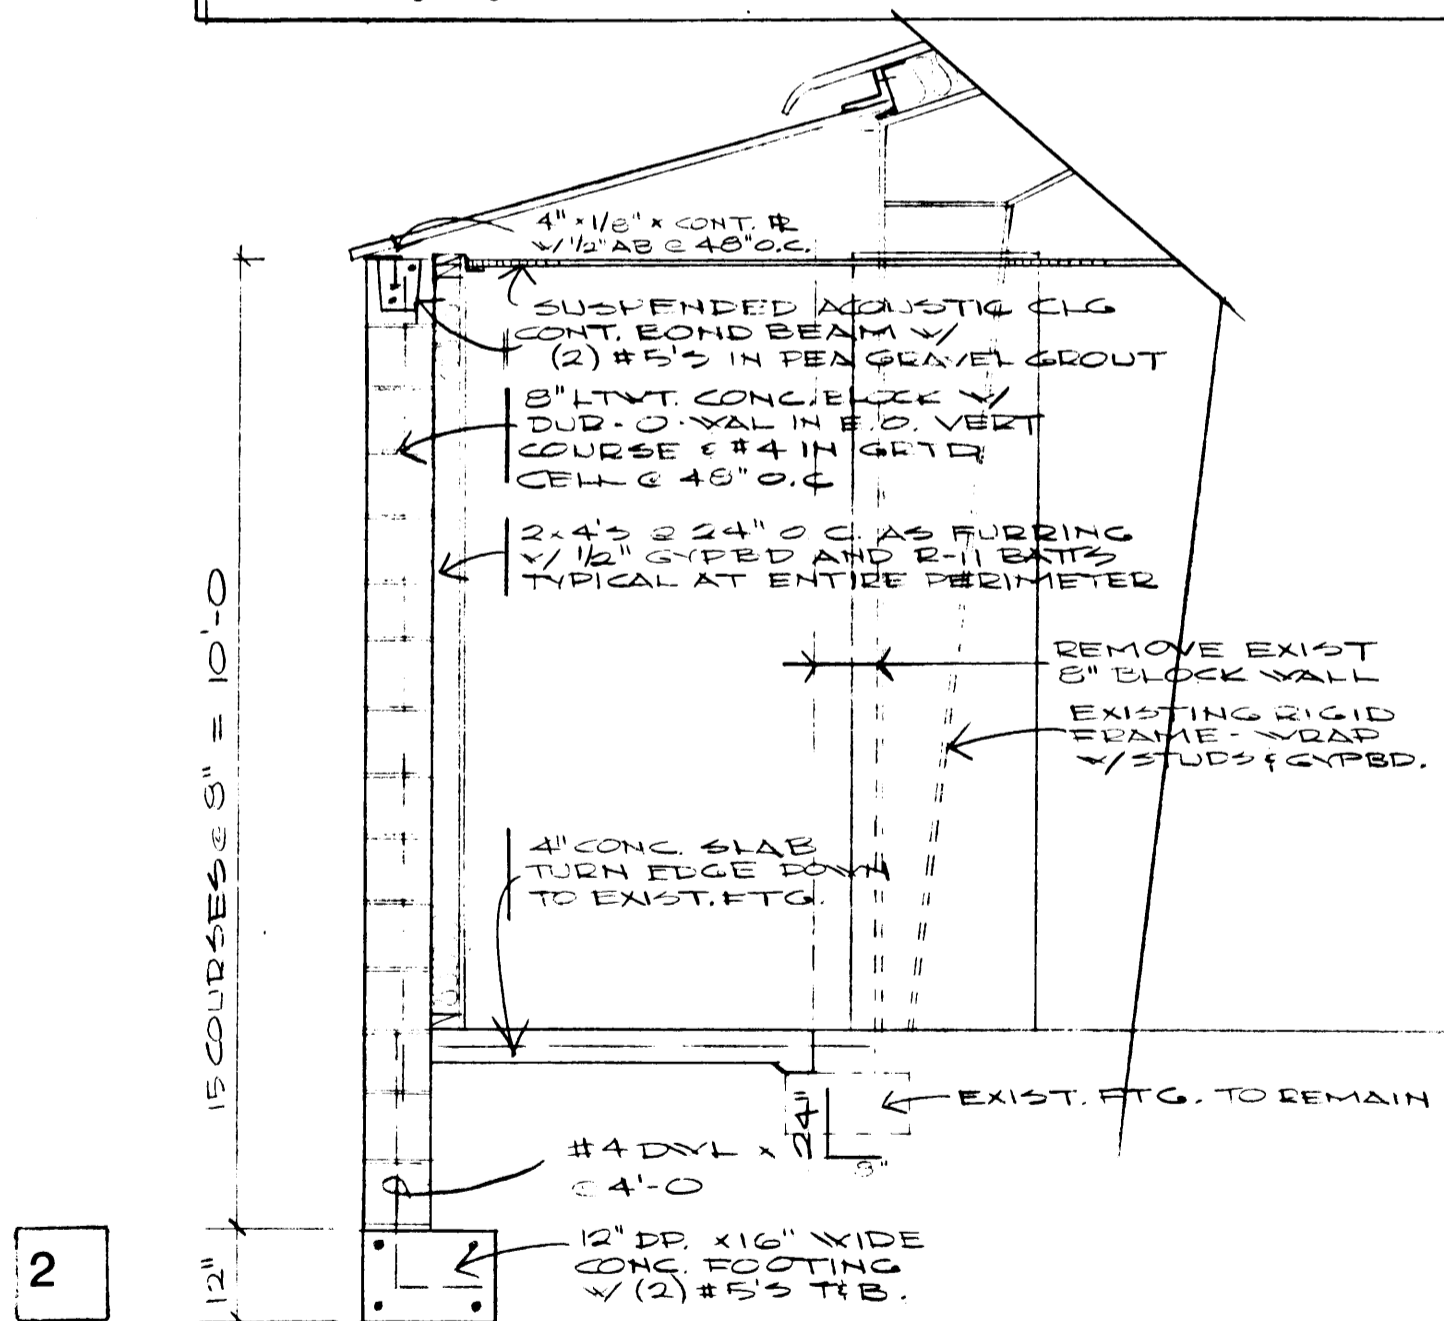 4" x 1/8" x CONT. PL
W/ 1/2" AB @ 48" O.C.
SUSPENDED ACOUSTIC CLG
CONT. BOND BEAM W/
(2) #5'S IN PEA GRAVEL GROUT
8" LTWT. CONC. BLOCK W/
DUR-O-WAL IN E.O. VERT
COURSE & #4 IN GRTD
CELL @ 48" O.C
2x4'S @ 24" O.C. AS FURRING
W/ 1/2" GYPBD AND R-11 BATTS
TYPICAL AT ENTIRE PERIMETER
REMOVE EXIST
8" BLOCK WALL
EXISTING RIGID
FRAME - WRAP
W/ STUDS & GYPBD.
15 COURSES @ 8" = 10'-0
4" CONC. SLAB
TURN EDGE DOWN
TO EXIST. FTG.
EXIST. FTG. TO REMAIN
#4 DWL x 24"
8"
@ 4'-0
12" DP. x 16" WIDE
CONC. FOOTING
W/ (2) #5'S T&B.
12"
2